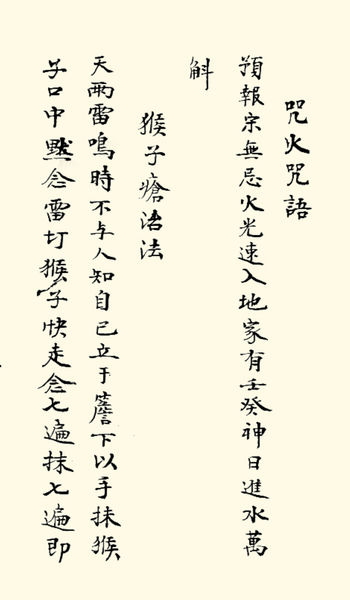 咒火咒語
預報宗無忌火光速入地家有壬癸神日進水萬
斛
猴子瘡治法
天雨雷鳴時不与人知自已立于簷下以手抹猴
子口中黙念雷打猴子快走念七遍抹七遍即